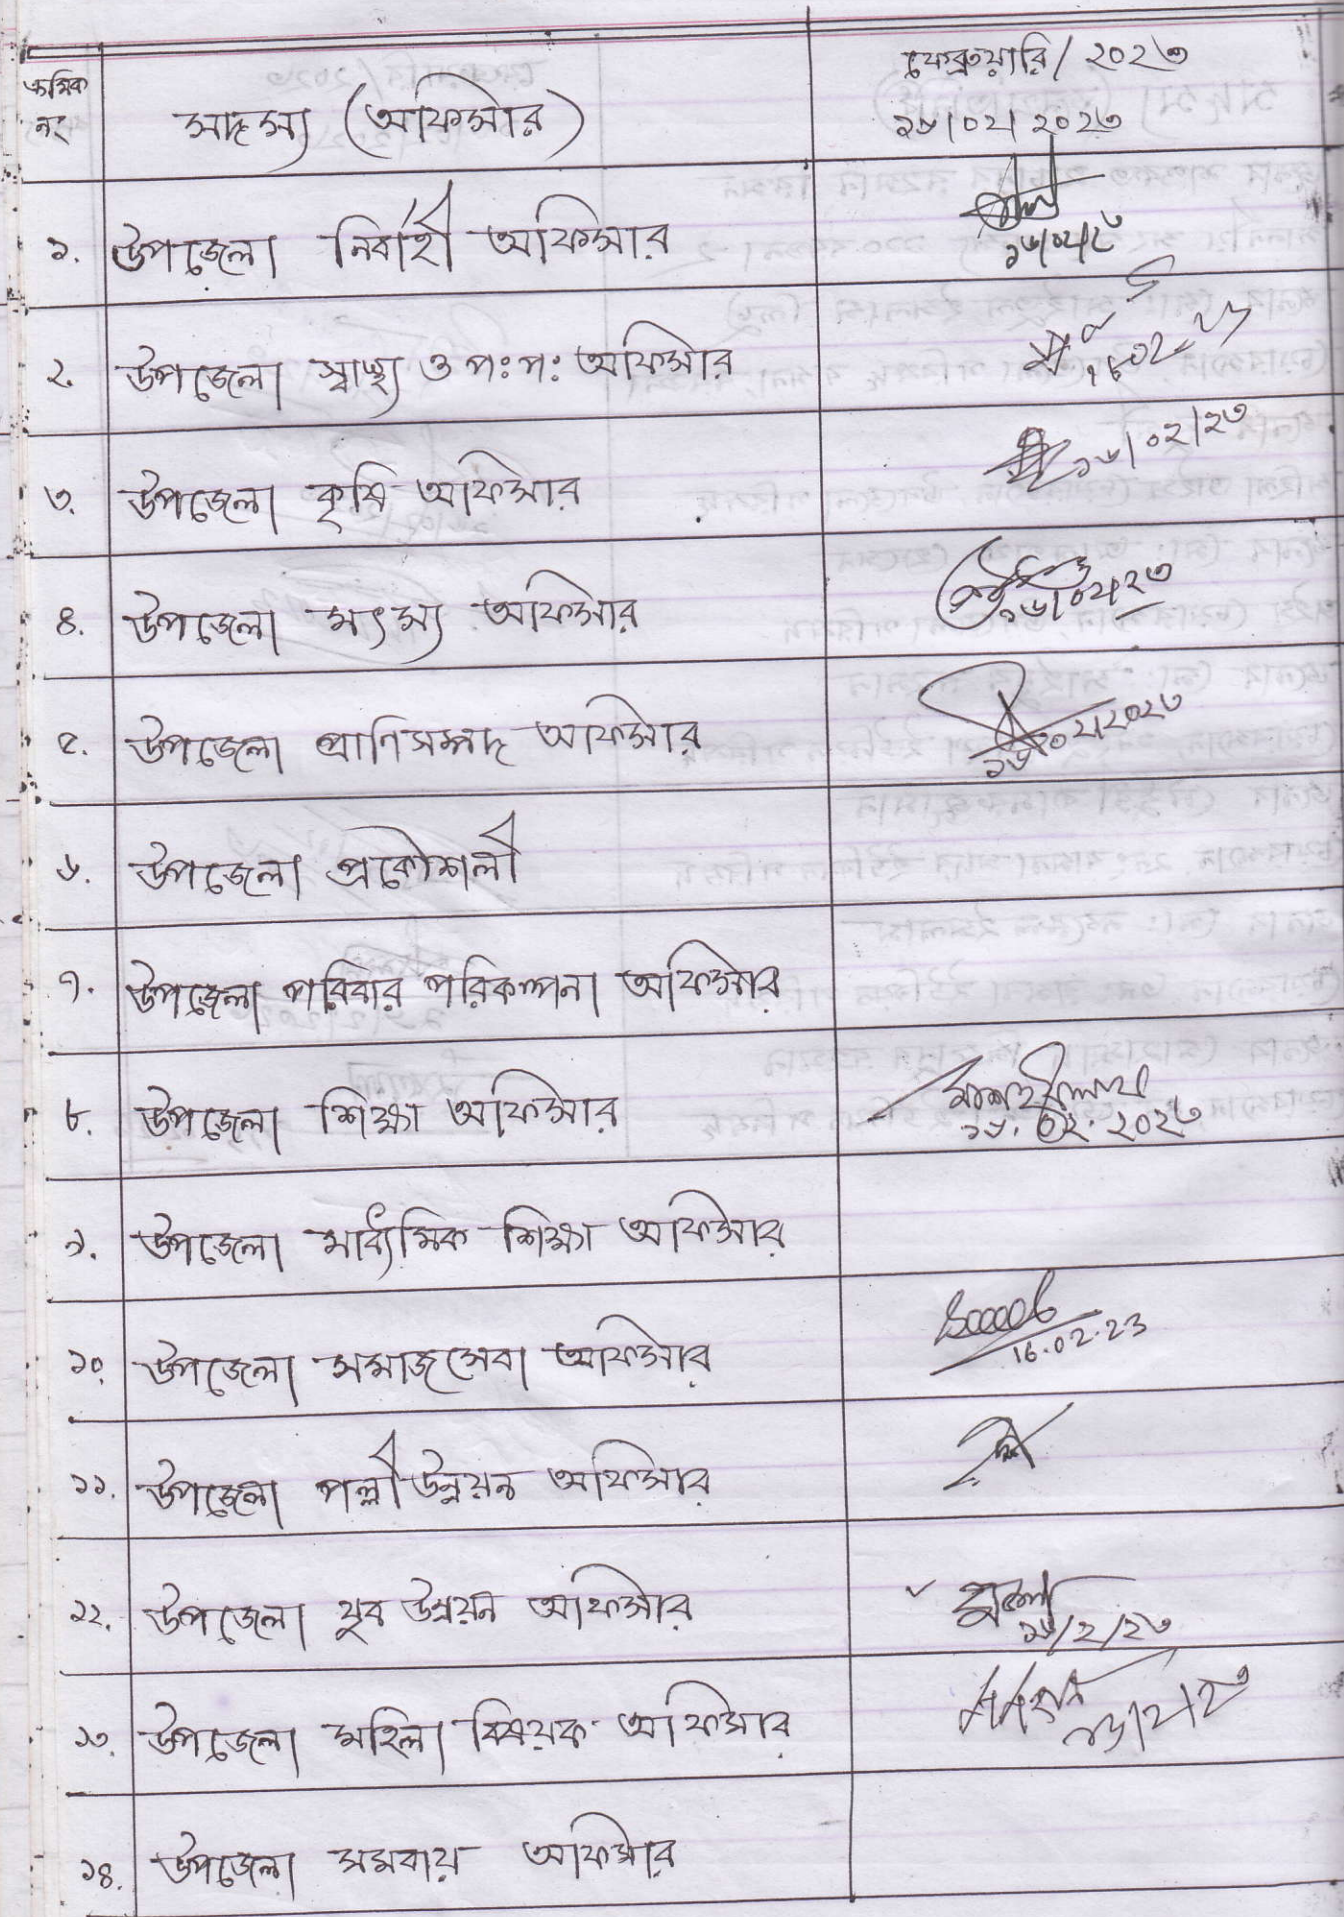 ক্রমিক নং
সদস্য (অফিসার)
ফেব্রুয়ারি/২০২৩
১৬/০২/২০২৩
১. উপজেলা নির্বাহী অফিসার
১৬/০২/২৩
২. উপজেলা স্বাস্থ্য ও প:প: অফিসার
16-02-23
৩. উপজেলা কৃষি অফিসার
১৬/০২/২৩
৪. উপজেলা মৎস্য অফিসার
১৬/০২/২৩
৫. উপজেলা প্রাণিসম্পদ অফিসার
১৬/০২/২০২৩
৬. উপজেলা প্রকৌশলী
৭. উপজেলা পরিবার পরিকল্পনা অফিসার
৮. উপজেলা শিক্ষা অফিসার
১৬.০২.২০২৩
৯. উপজেলা মাধ্যমিক শিক্ষা অফিসার
১০. উপজেলা সমাজসেবা অফিসার
16.02.23
১১. উপজেলা পল্লী উন্নয়ন অফিসার
১২. উপজেলা যুব উন্নয়ন অফিসার
১৬/২/২৩
১৩. উপজেলা মহিলা বিষয়ক অফিসার
১৬/২/২৩
১৪. উপজেলা সমবায় অফিসার